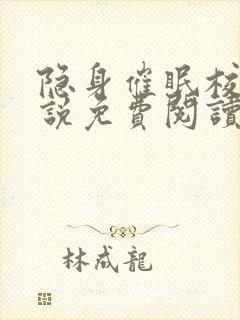 隐身催眠校
說免費閱讀
林成龍